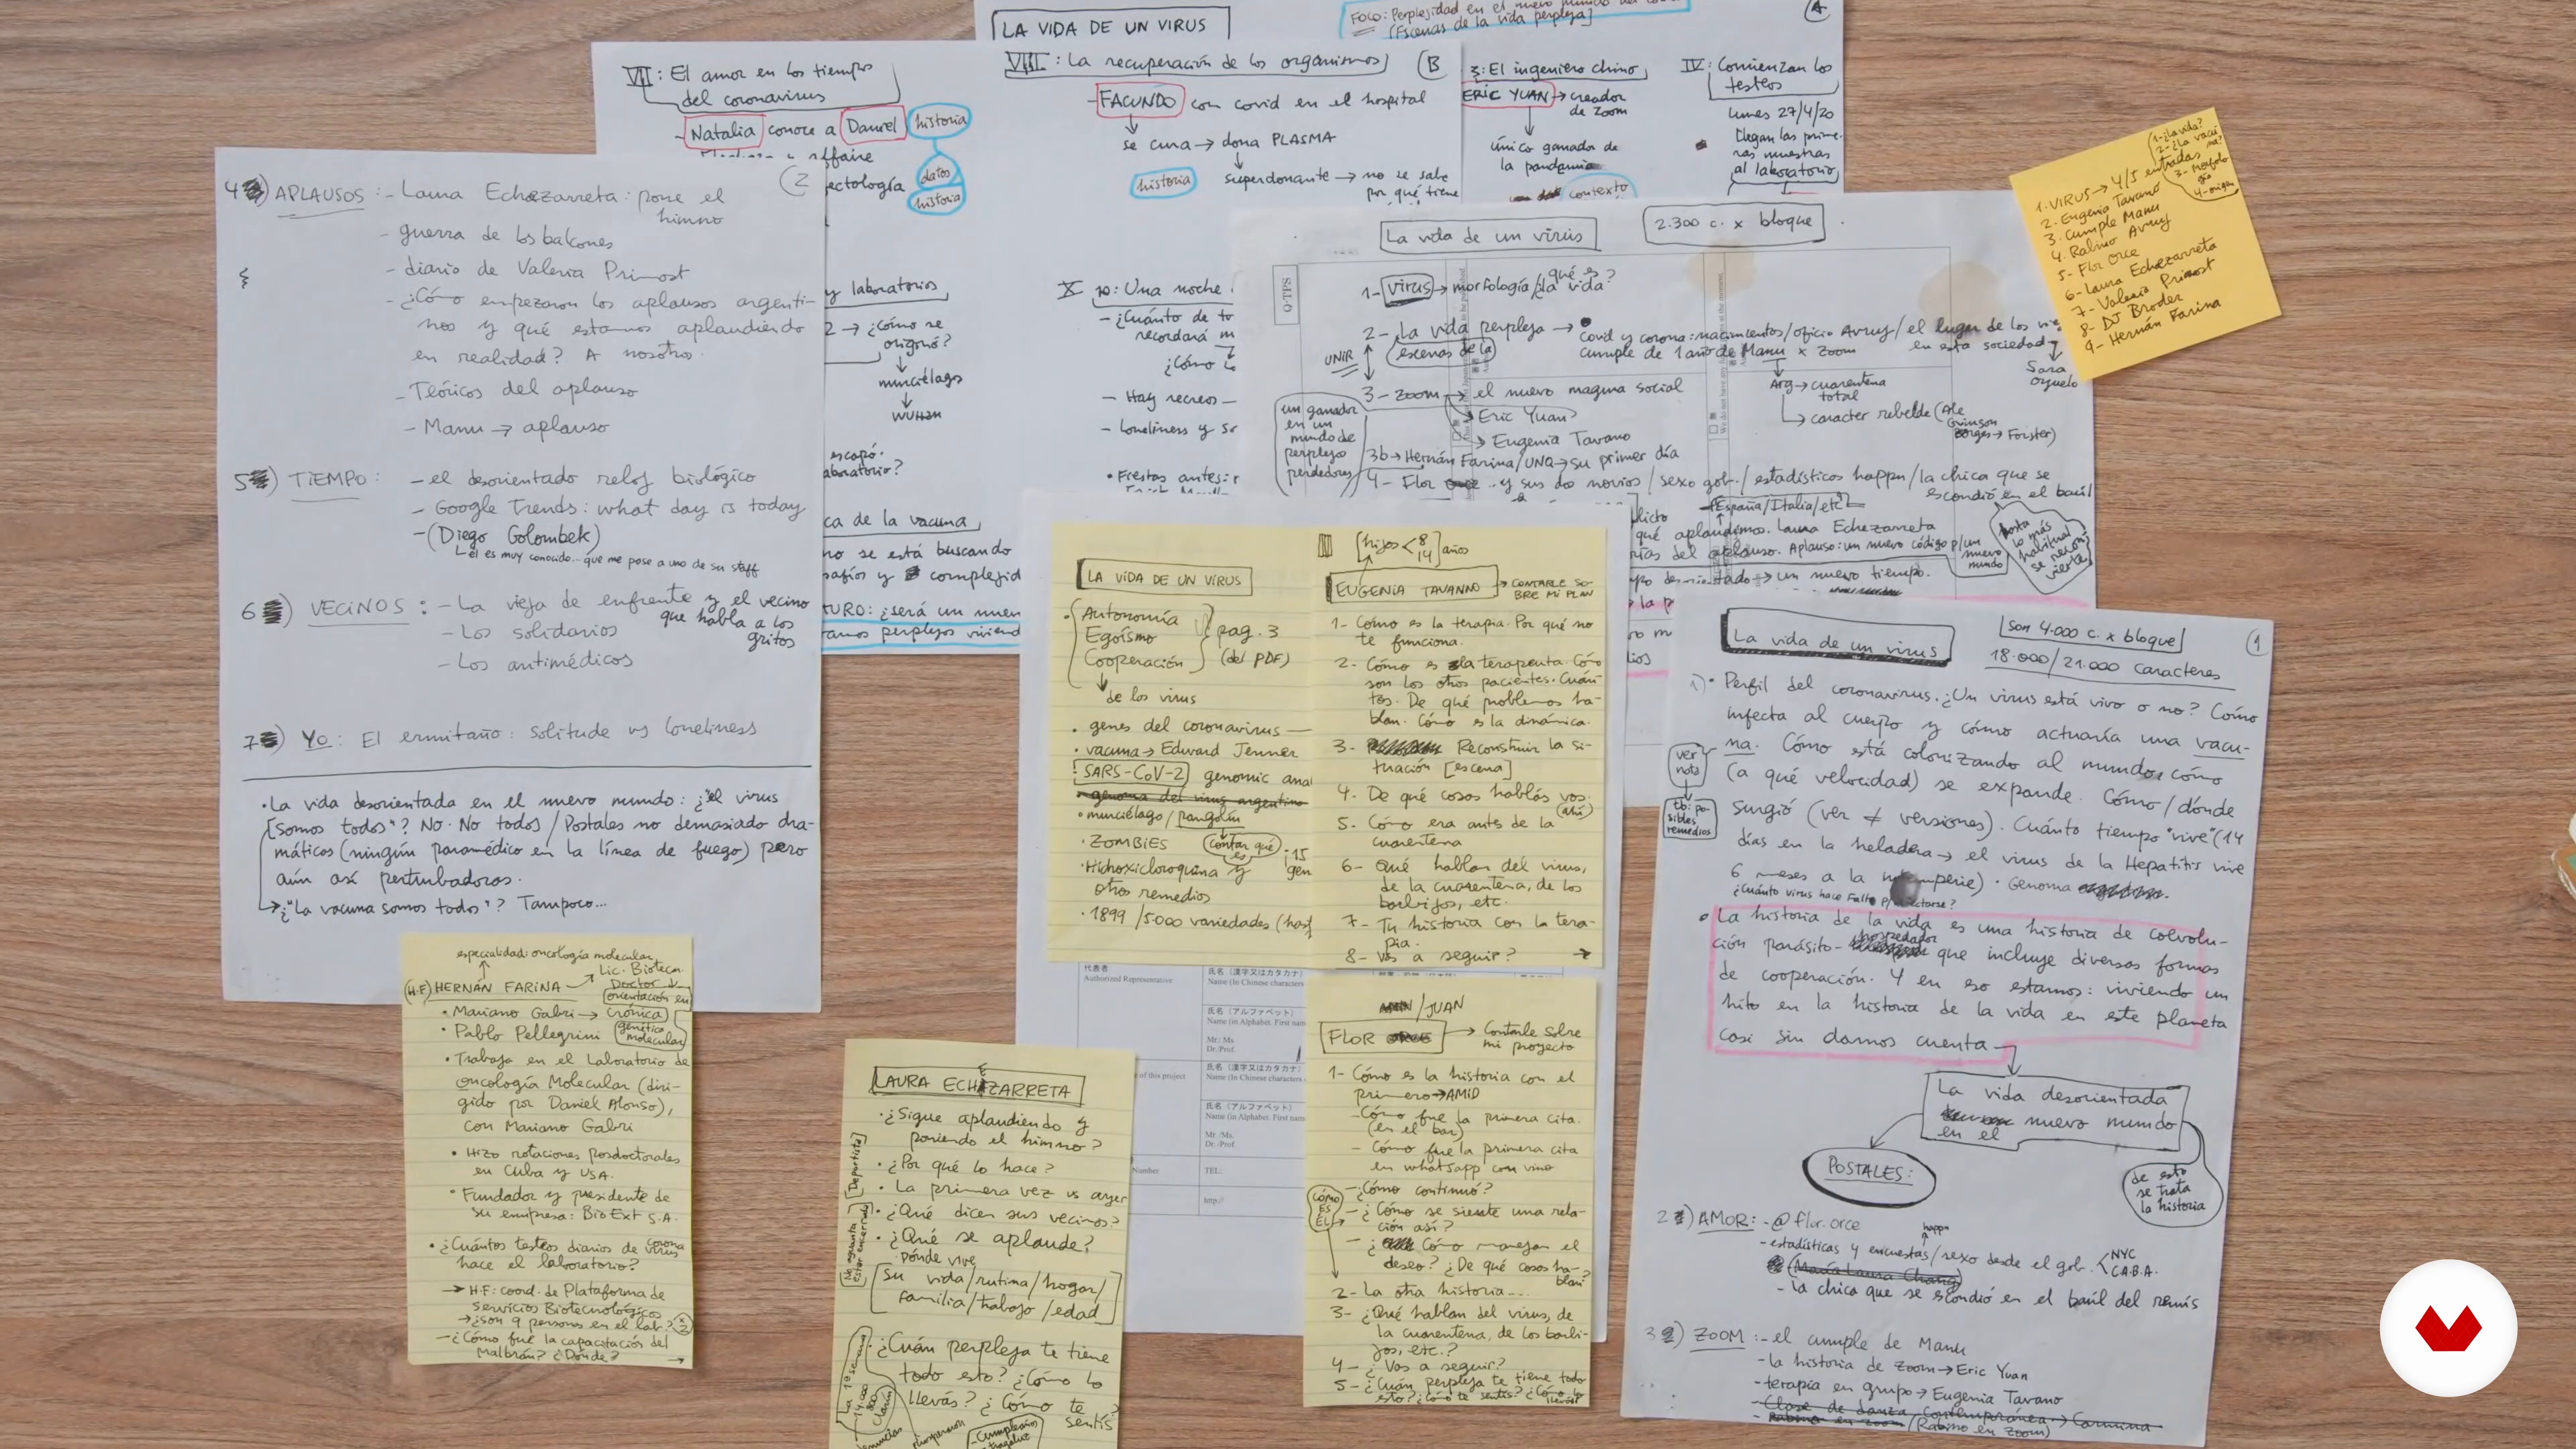 LA VIDA DE UN VIRUS
FOCO: Perplejidad en el nuevo mundo del
(Escenas de la vida perpleja]
A
VII: El amor en los tiempos
del coronavirus
- Natalia conoce a Daniel historia
affaire
ectología
datos
historia
VIII: La recuperación de los organismos
B
- FACUNDO con covid en el hospital
se cura → dona PLASMA
historia
superdonante → no se sabe
por qué tiene
3: El ingeniero chino
ERIC YUAN → creador
de Zoom
único ganador de
la pandemia
contexto
IV: Comienzan los
testeos
lunes 27/4/20
llegan las prime-
ras muestras
al laboratorio
y laboratorios
2 → ¿Cómo se
originó?
murciélago
WUHAN
escapó
aboratorio?
ca de la vacuna
no se está buscando
safíos y complejid
TURO: ¿será un nuev
tamos perplejos viviend
X 10: Una noche
- ¿Cuánto de to
recordará m
¿Cómo
- Hay recreos -
- loneliness y so
• Fiestas antes:
4) APLAUSOS: - Laura Echezarreta: pone el
himno
2
- guerra de los balcones
- diario de Valeria Primost
- ¿Cómo empezaron los aplausos argenti-
nos y qué estamos aplaudiendo
en realidad? A nosotros.
- Teóricos del aplauso
- Manu → aplauso
5) TIEMPO: - el desorientado reloj biológico
- Google Trends: what day is today
- (Diego Golombek)
él es muy conocido... que me pase a uno de su staff
6) VECINOS: - La vieja de enfrente y el vecino
que habla a los
gritos
- Los solidarios
- Los antimédicos
7) Yo: El ermitaño: solitude vs loneliness
• La vida desorientada en el nuevo mundo: ¿"el virus
somos todos"? No. No todos / Postales no demasiado dra-
máticas (ningún paramédico en la línea de fuego) pero
aún así perturbadoras.
→ ¿"La vacuna somos todos"? Tampoco...
1. VIRUS → 4/5 entradas
2. Eugenia Tavano
3. Cumple Manu
4. Rabino Avruj
5- Flor Orce
6- Laura Echezarreta
7- Valeria Primost
8- DJ Broder
9- Hernán Farina
1-¿la vida?
4-origen
La vida de un virus
2.300 c. x bloque
Q-TPS
1- Virus → morfología / ¿la vida?
qué es
2- La vida perpleja →
escenas de la
UNIR
Covid y corona: nacimientos / oficio Avruj / el lugar de los
cumple de 1 año de Manu x Zoom
en esta sociedad
Sara
Arg → cuarentena
total
caracter rebelde
Forster)
3- Zoom → el nuevo magma social
Eric Yuan
Eugenia Tavano
un ganador
en un
mundo de
perplejos
perdedores
3b → Hernán Farina / UNQ → su primer día
4- Flor y sus dos novios / sexo gob. / estadísticos happn / la chica que se
escondió en el baúl
España / Italia / etc
qué aplaudimos. Laura Echezarreta
rias del aplauso. Aplauso: un nuevo código p/un
nuevo
mundo
hasta
lo más
habitual
se
→ un nuevo tiempo.
LA VIDA DE UN VIRUS
• Autonomía
Egoísmo
Cooperación
pag. 3
(del PDF)
de los virus
• genes del coronavirus
• vacuna → Edward Jenner
SARS-CoV-2 genomic anal
genoma del virus argentino
• murciélago / pangolín
• ZOMBIES
Contar qué
es
• Hidroxicloroquina y
otros remedios
• 1899 / 5000 variedades
III [hijos < 8 14] años
EUGENIA TAVANNO → CONTARLE SO-
BRE MI PLAN
1- Cómo es la terapia. Por qué no
te funciona.
2- Cómo es la terapeuta. Cómo
son los otros pacientes. Cuán-
tos. De qué problemas ha-
blan. Cómo es la dinámica.
3- Reconstruir la si-
tuación [escena]
4. De qué cosas hablás vos.
(ahí)
5- Cómo era antes de la
cuarentena
6- Qué hablan del virus,
de la cuarentena, de los
barbijos, etc.
7- Tu historia con la tera-
pia.
8- Vas a seguir?
La vida de un virus
Son 4.000 c. x bloque
18.000 / 21.000 caracteres
1
1) • Perfil del coronavirus. ¿Un virus está vivo o no? Cómo
infecta al cuerpo y cómo actuaría una vacu-
na. Cómo está colonizando al mundo, cómo
(a qué velocidad) se expande. Cómo / dónde
surgió (ver ≠ versiones). Cuánto tiempo "vive" (14
días en la heladera → el virus de la Hepatitis vive
6 meses a la intemperie). Genoma
¿Cuánto virus hace falta
ver
nota
tb: po-
sibles
remedios
• La historia de la vida es una historia de coevolu-
ción parásito- hospedador que incluye diversas formas
de cooperación. Y en eso estamos: viviendo un
hito en la historia de la vida en este planeta
casi sin darnos cuenta
La vida desorientada
en el nuevo mundo
POSTALES:
de esto
se trata
la historia
2) AMOR: - @flor.orce
happn
- estadísticas y encuestas / sexo desde el gob. < NYC
C.A.B.A.
(María Laura Chang)
- la chica que se escondió en el baúl del remís
3) ZOOM: - el cumple de Manu
- la historia de Zoom → Eric Yuan
- terapia en grupo → Eugenia Tavano
- Clase de danza contemporánea → Carmina
(Rabino en Zoom)
especialidad: oncología molecular
(H.F) HERNÁN FARINA
Lic. Biotecn.
Doctor
orientación en
genética
molecular
• Mariano Gabri → Crónica
• Pablo Pellegrini
• Trabaja en el Laboratorio de
oncología Molecular (diri-
gido por Daniel Alonso),
con Mariano Gabri
• Hizo rotaciones posdoctorales
en Cuba y USA.
• Fundador y presidente de
su empresa: BioExt S.A.
• ¿Cuántos testeos diarios de corona
virus
hace el laboratorio?
→ H.F: coord. de Plataforma de
servicios Biotecnológicos
→ ¿son 9 personas en el lab.?
- ¿Cómo fue la capacitación del
Malbrán? ¿Dónde?
LAURA ECHEZARRETA
• ¿Sigue aplaudiendo y
poniendo el himno?
• ¿Por qué lo hace?
• La primera vez vs ayer
• ¿Qué dicen sus vecinos?
• ¿Qué se aplaude?
• Dónde vive
[Deportista]
[No aguanta
estar encerrada]
[su vida / rutina / hogar /
familia / trabajo / edad]
• ¿Cuán perpleja te tiene
todo esto? ¿Cómo lo
llevás? ¿Cómo te
sentís?
14.000
Clarín
- Cumpleaños
/ JUAN
FLOR → Contarle sobre
mi proyecto
1- Cómo es la historia con el
primero → AMID
- Cómo fue la primera cita.
(en el bar)
- Cómo fue la primera cita
en whatsapp con vino
- ¿Cómo continuó?
CÓMO
ES
ÉL
- ¿Cómo se siente una rela-
ción así?
- ¿Cómo manejan el
deseo? ¿De qué cosas ha-
blan?
2- La otra historia...
3- ¿Qué hablan del virus, de
la cuarentena, de los barbi-
jos, etc.?
4- ¿Vas a seguir?
5- ¿Cuán perpleja te tiene todo
esto? ¿Cómo te sentís? ¿Cómo lo
llevás?
代表者
Authorized Representative
氏名 (漢字又はカタカナ)
Name (In Chinese characters
氏名 (アルファベット)
Name (in Alphabet. First nam
Mr./Ms.
Dr./Prof.
of this project
氏名 (漢字又はカタカナ)
Name (In Chinese characters
氏名 (アルファベット)
Name (in Alphabet. First nam
Mr./Ms.
Dr./Prof.
Number
TEL:
http://